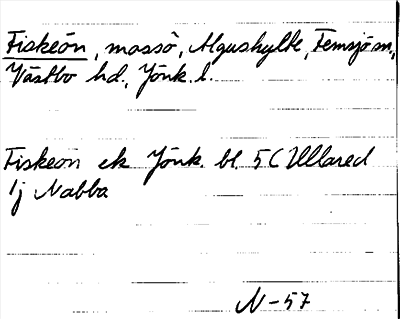 Fiskeön, mossö, Algushylte, Femsjö sn,
Västbo hd, Jönk. l.
Fiskeön ek Jönk. bl. 5 C Ullared
1j Nabba
N-57